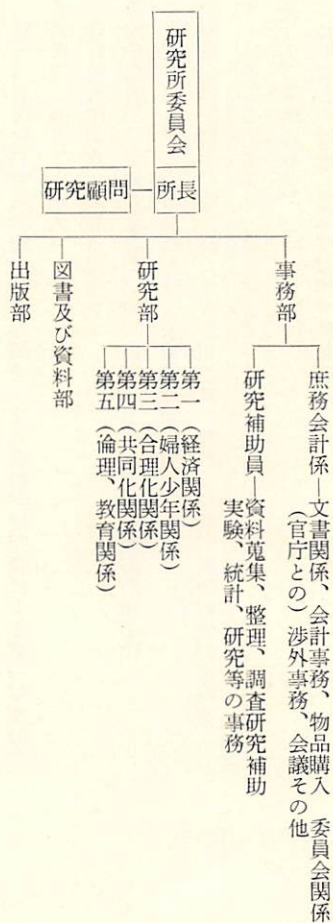 研究所委員会
所長
研究顧問
事務部
庶務会計係―文書関係、会計事務、物品購入 委員会関係
(官庁との)渉外事務、会議その他
研究補助員―資料蒐集、整理、調査研究補助
実験、統計、研究等の事務
研究部
第一(経済関係)
第二(婦人少年関係)
第三(合理化関係)
第四(共同化関係)
第五(倫理、教育関係)
図書及び資料部
出版部